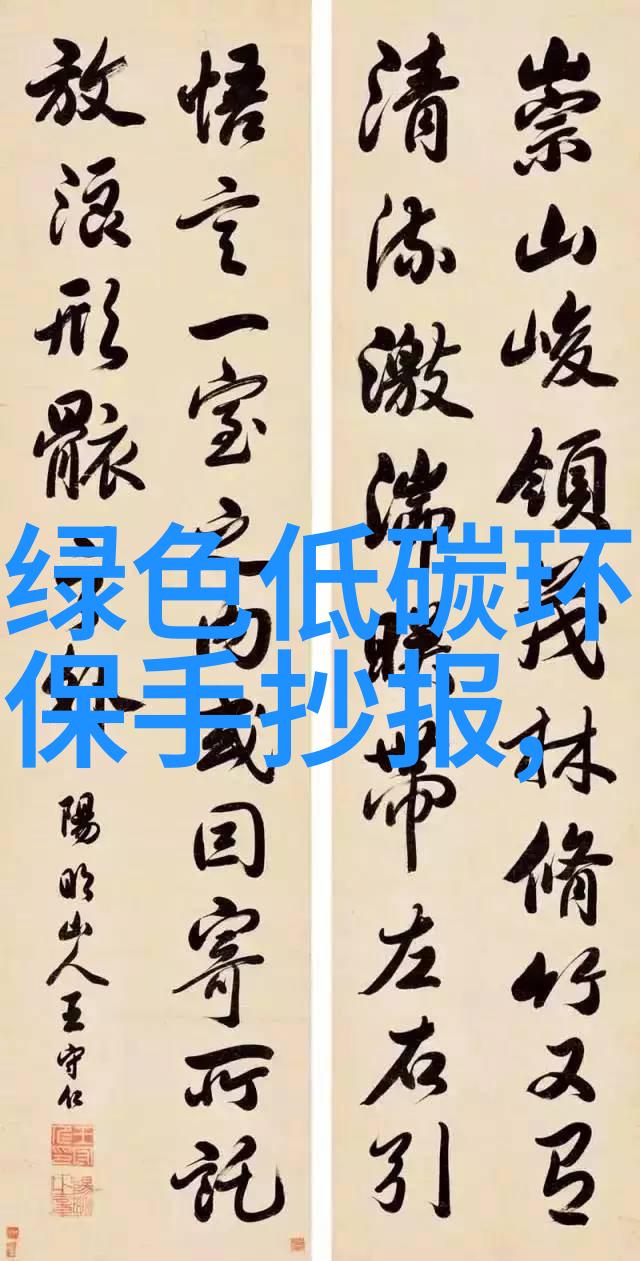 崇山峻領茂林脩竹又有
清流激湍映帶左右引
悟言一室之內或因寄所託
放浪形骸之外
陽明山人王守仁
绿色低碳环
保手抄报,